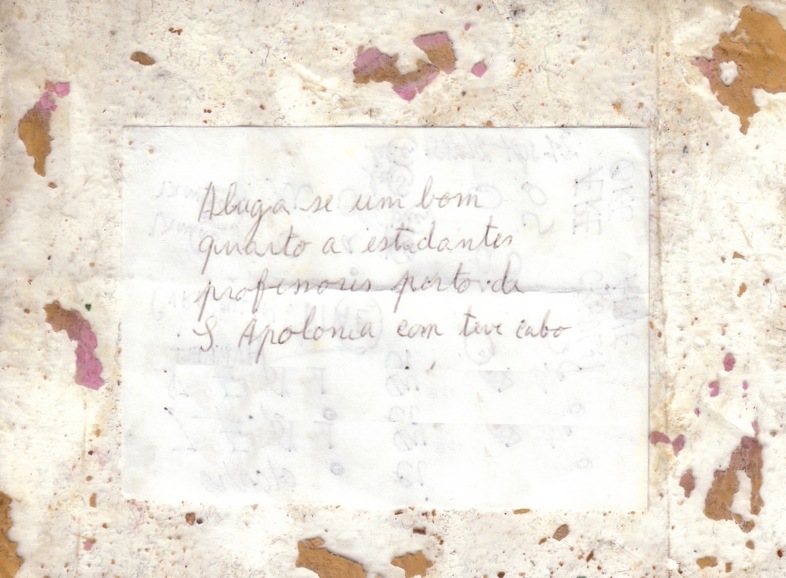 Aluga se um bom
quarto a estudantes
professores perto de
S. Apolonia com tive cabo